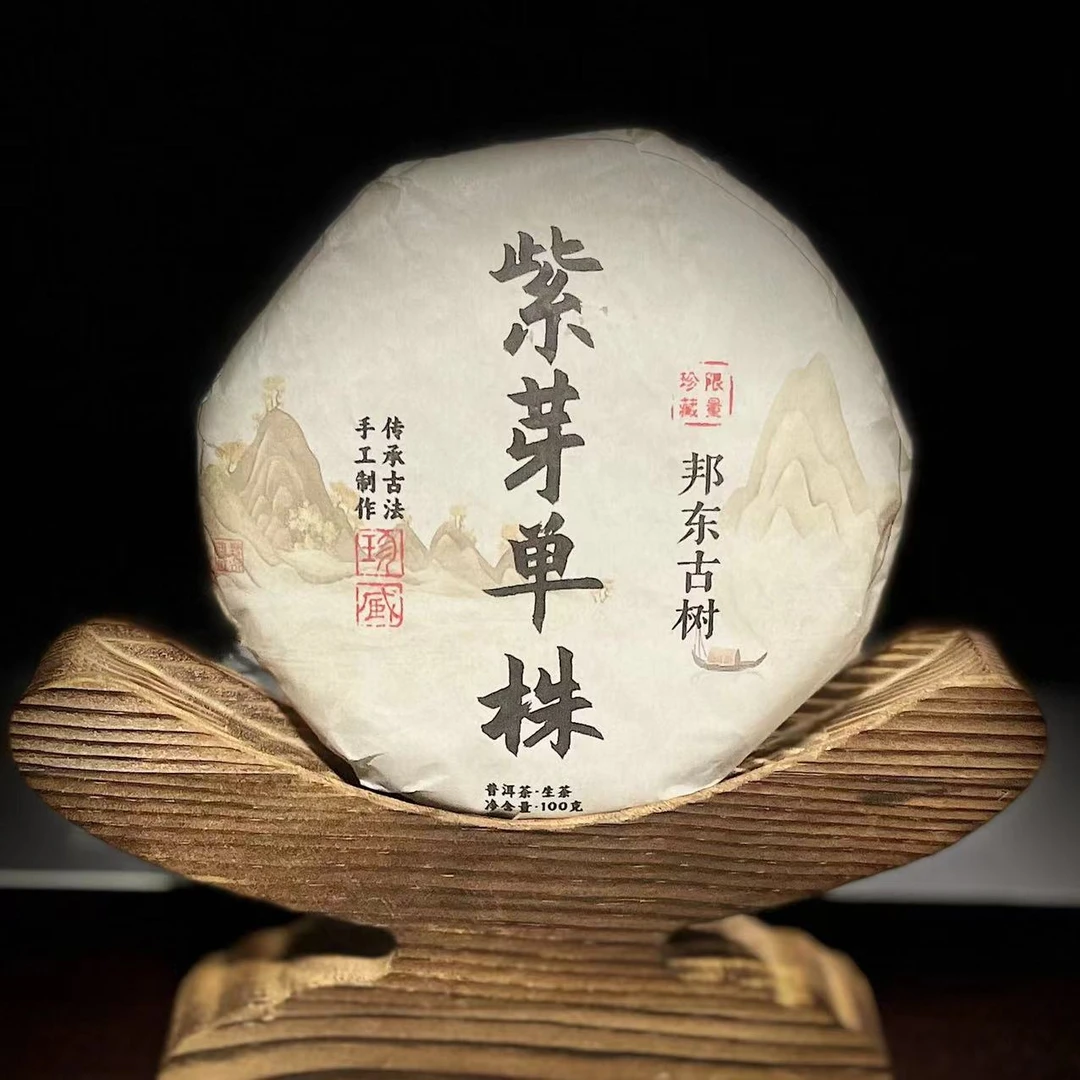 紫芽单株
限量
珍藏
邦东古树
传承古法
手工制作
珍藏
普洱茶·生茶
净含量·100克